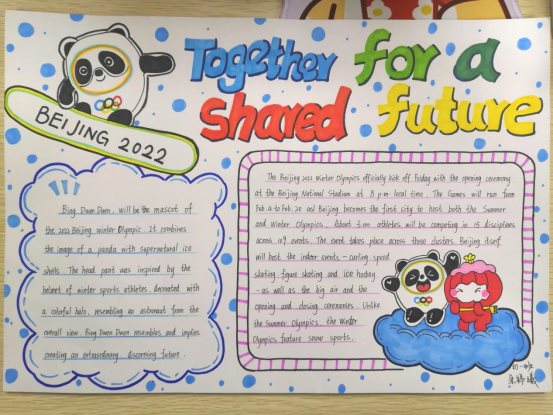 Together for a
shared future
BEIJING 2022
Bing Dwen Dwen, will be the mascot of
the 2022 Beijing winter Olympic. It combines
the image of a panda with supernatural ice
shells. The head part was inspired by the
helmet of winter sports athletes, decorated with
a colorful halo, resembling an astronaut from the
overall view. Bing Dwen Dwen resembles and implies
creating an extraordinary, discerning future.
The Beijing 2022 Winter Olympics officially kick off Friday with the opening ceremony
at the Beijing National Stadium at 8 p.m. local time. The Games will run from
Feb.4 to Feb.20 and Beijing becomes the first city to host both the Summer
and Winter Olympics. About 3000 athletes will be competing in 15 disciplines
across 109 events. The event takes place across three clusters. Beijing itself
will host the indoor events - curling, speed
skating, figure skating and ice hockey
- as well as the big air and the
opening and closing ceremonies. Unlike
the Summer Olympics, the Winter
Olympics feature snow sports.